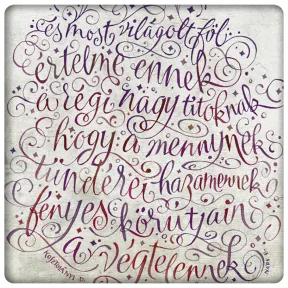 és most világolt föl:
értelme ennek
a régi nagy titoknak
hogy a mennynek
tündérei hazamennek
fényes körutjain
a végtelennek